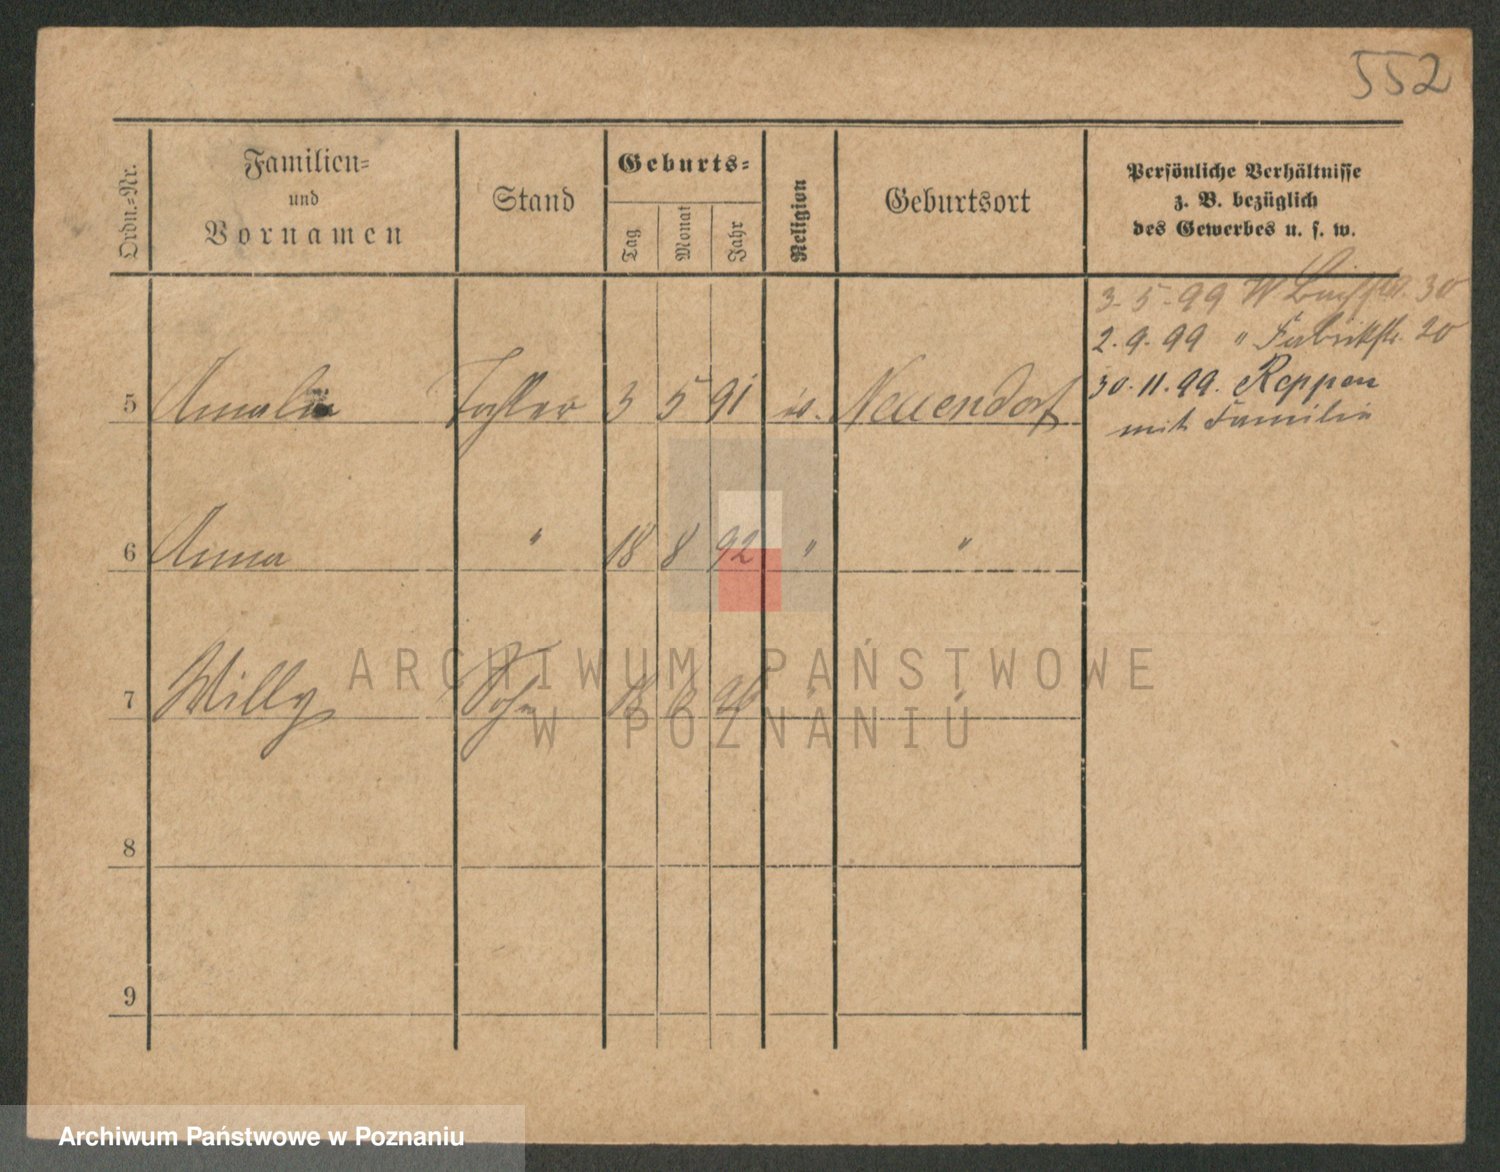 552
Ordn.-Nr.
Familien-
und
Vornamen
Stand
Geburts-
Tag
Monat
Jahr
Religion
Geburtsort
Persönliche Verhältnisse
z. B. bezüglich
des Gewerbes u. s. w.
3-5-99 W 30
2.9.99 " Fabrikstr. 20
30.11.99. Reppen
mit Familie
5 Amalie Tochter 3 5 91 is. Neuendorf
6 Anna " 18 8 92 " "
7 Willy Sohn 18 " "
8
9
ARCHIWUM PAŃSTWOWE
W POZNANIU
Archiwum Państwowe w Poznaniu